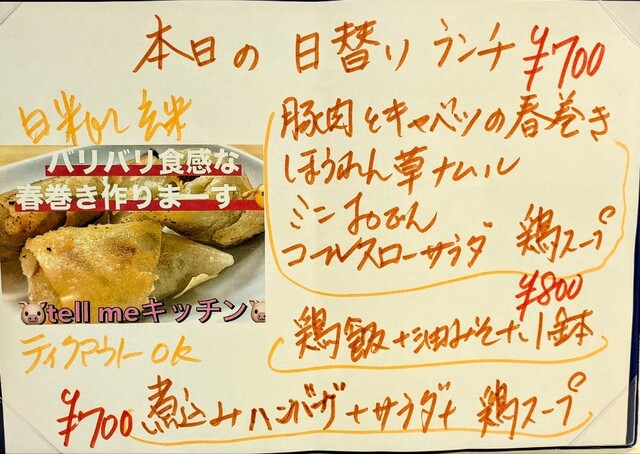 本日の日替りランチ ¥700
白米or玄米
豚肉とキャベツの春巻き
ほうれん草ナムル
ミニおでん
コールスローサラダ 鶏スープ
バリバリ食感な
春巻き作りまーす
tell meキッチン
テイクアウトOK
¥800
鶏飯+油みそ+小鉢
¥700 煮込みハンバーグ+サラダ+鶏スープ